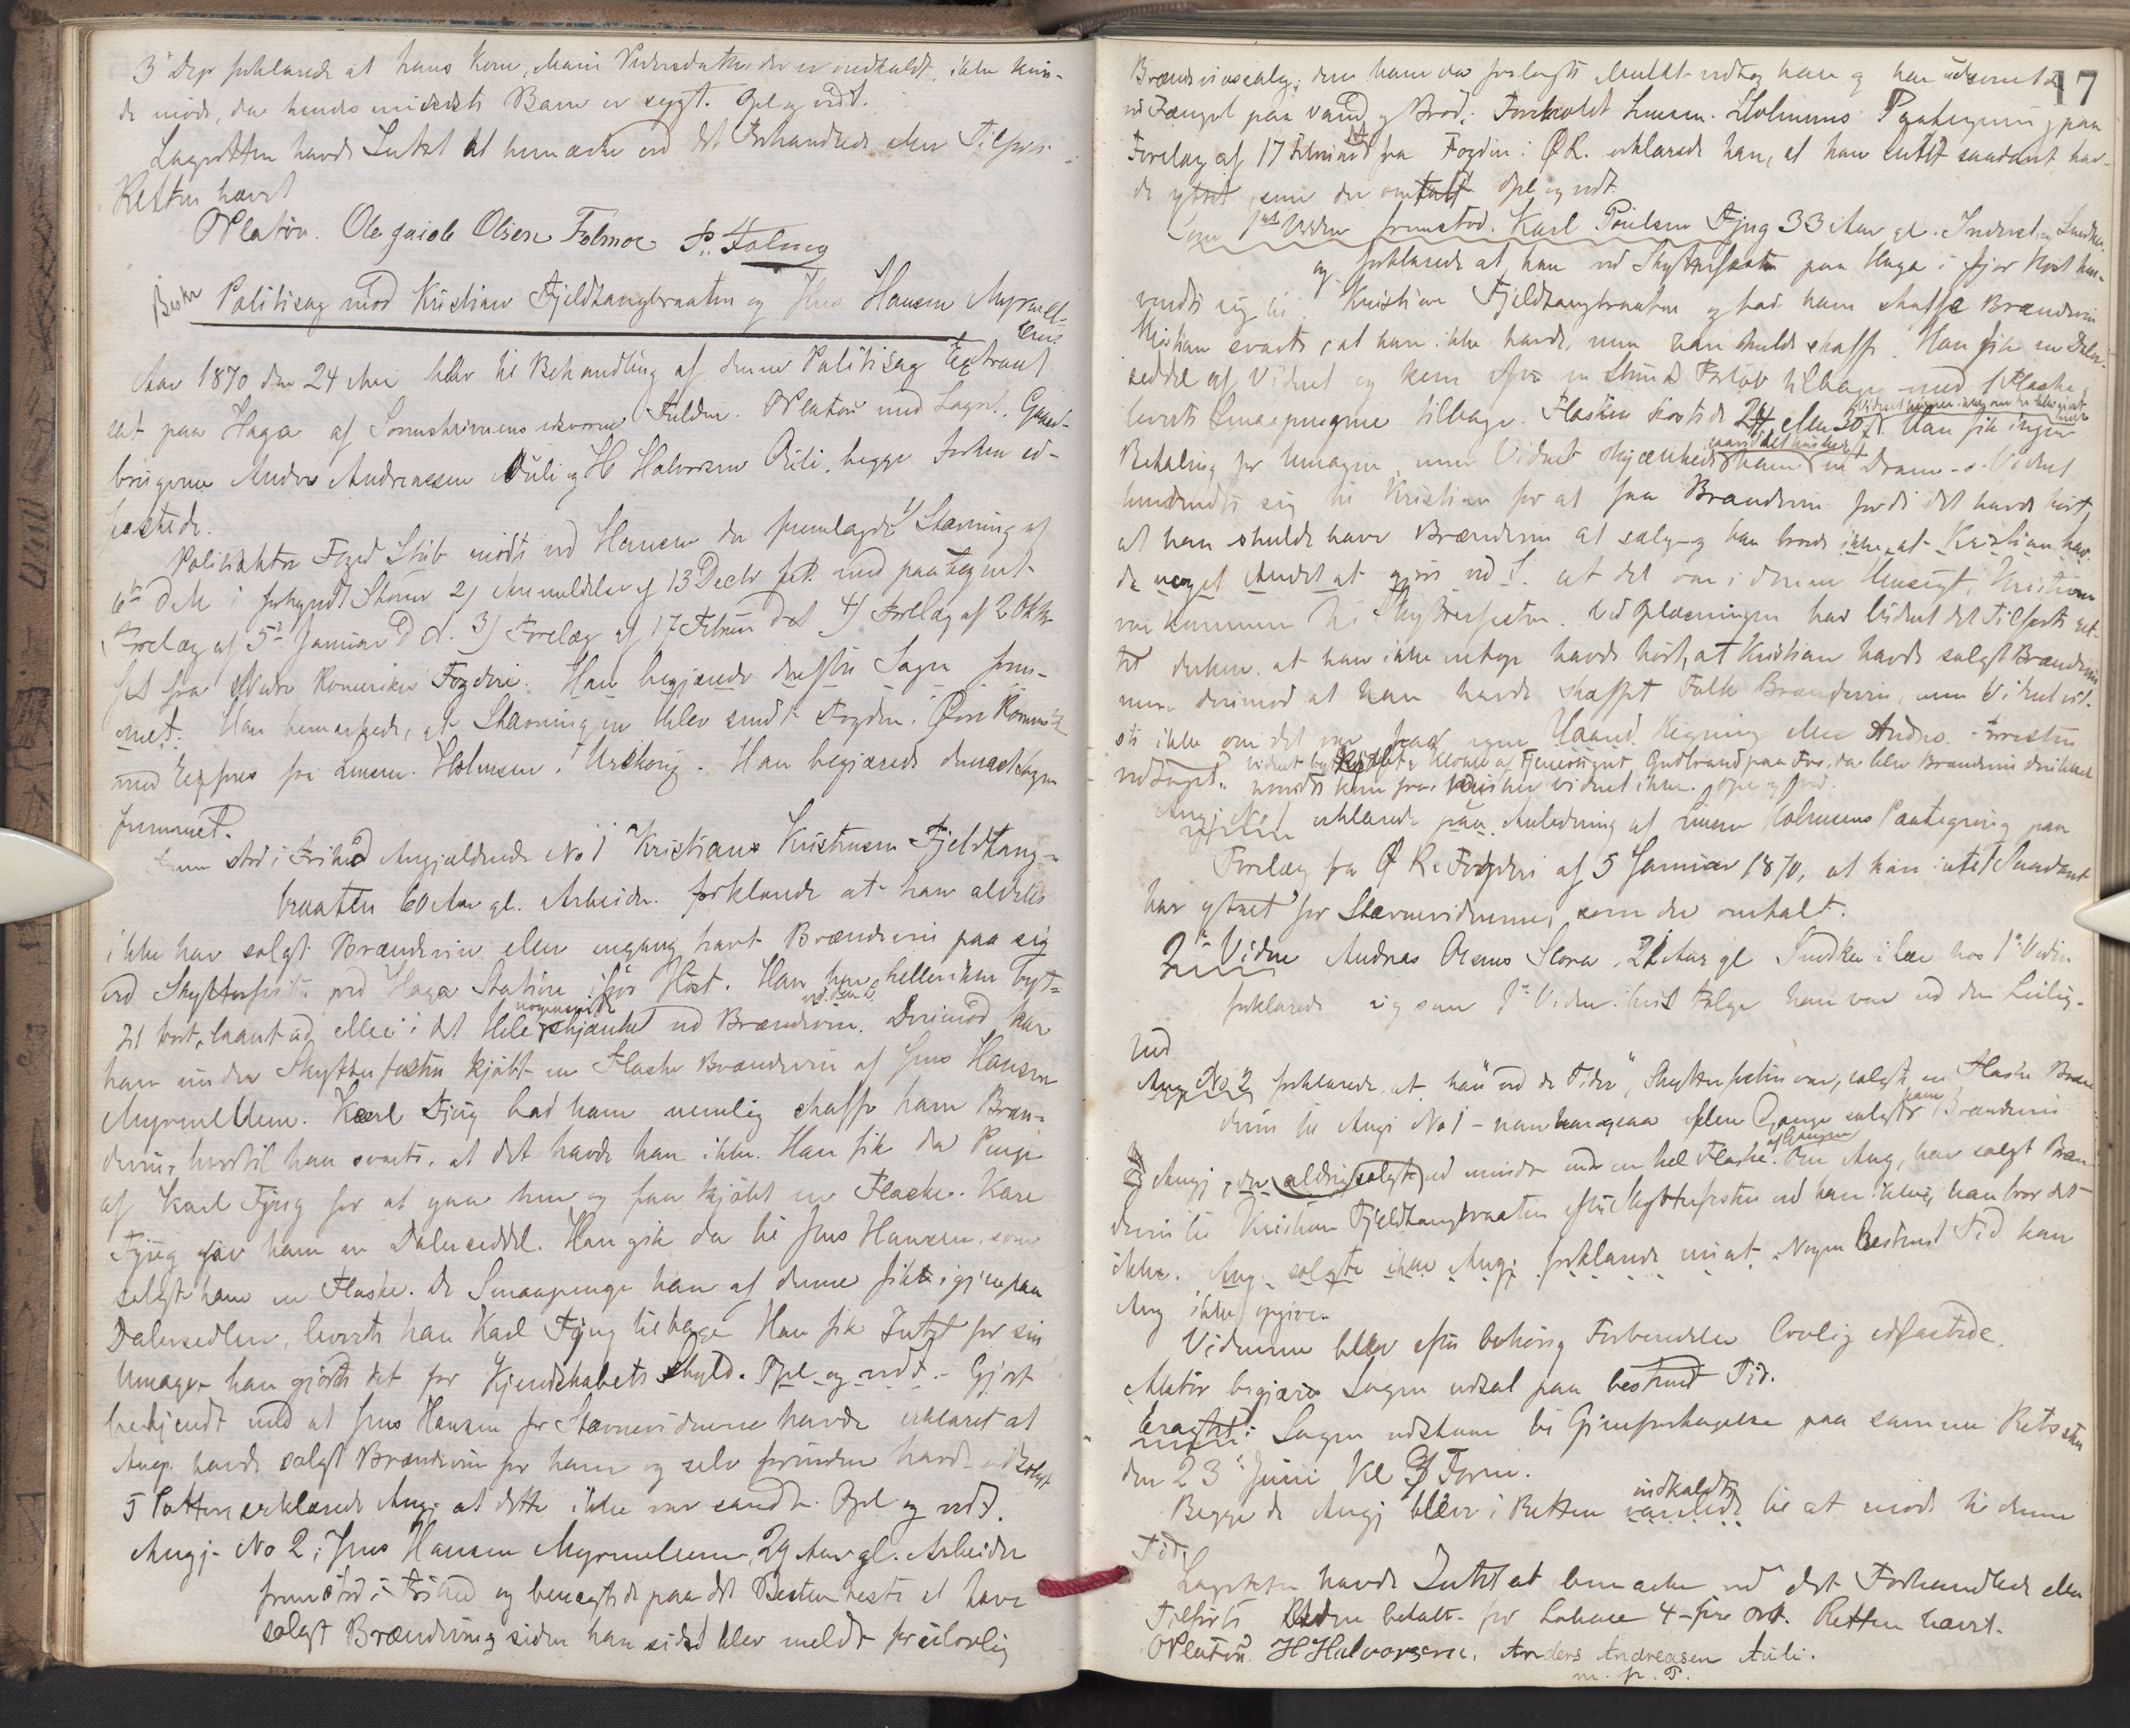 3 Dep forklarede at hans Kone, Marie Pedersdatter der er indkaldt, ikke kun-
de møde, da hendes mindste Barn er sygt. Opl og vedt.
Lagretten havde Intet at bemærke ved det Forhandlede eller Tilførte.
Retten hævet
OPlatou. Ole Jacob Olsen Folmoe
Besk Politisag mod Kristian Fjeldhangbraaten og Jens Hansen Myrmell-
em.
Aar 1870 den 24 Mai blev til Behandling af denne Politisag Extraret
sat paa Haga af Sorenskriverens edsvorne Fuldm. OPlatou med Lagret. Gaard-
brugerne Anders Andreassen Auli og H Halvorsen begge forhen ed-
fæstede.
Politiaktor Foged Stub mødte ved Hansen der fremlagde 1/ Stævning af
6te d M i forkyndt Stand 2) Anmeldelse af 13 Decbr f. A. med paategnet
Forelæg af 5te Januar d A. 3) Forelæg af 17 Februar d A 4) Forelæg af 20 Oktbr
f A fra Nedre Romerikes Fogderi. Han begjærede derefter Sagen frem-
met. Han bemærkede, at Stævningen blev sendt Fogden i Øvre Romerike
med Expres fra Lensm. Holmsen i Urskoug. Han begjærede derneст Sagen
fremmet.
Frem stod i Frihed Angjældende No 1 Kristian Kristiansen Fjeldhang-
braaten 60 Aar gl. Arbeider. forklarede at han aldeles
ikke har solgt Brændevin eller engang havt Brændevin paa sig
ved Skytterfesten ved Haga Station ifjor Høst. Han har heller ikke byt-
tet bort, laant ud eller i det Hele skjænket ud Brændevin. Derimod har
han under Skytterfesten kjøbt en Flaske Brændevin af Jens Hansen
Myrmellem. Karl Fjug bad ham nemlig skaffe ham Bræn-
devin, hvortil han svarte, at det havde han ikke. Han fik da Penge
af Karl Fjug for at gaa hen og faa kjøbt en Flaske. Karl
Fjug gav ham en Dalerseddel. Han gik da til Jens Hansen, som
solgte ham en Flaske. De Smaapenge han af denne fik igjen paa
Dalersedlen, leverte han Karl Fjug tilbage. Han fik Intet for sin
Umage – han gjorde det for Kjendskabets Skyld. Opl og vedt. – Gjort
bekjendt med at Jens Hansen for Stævnevidnerne havde erklæret at
Ang. havde solgt Brændevin for ham og selv forinden havde udsolgt
5 Potter erklærede Angj. at dette ikke var sandt. Opl og vedt.
Angj. No 2, Jens Hansen Myrmellem, 29 Aar gl. Arbeider
fremstod i Frihed og benægtede paa det Bestemteste at have
solgt Brændevin siden han sidst blev meldt for ulovlig
17
Brændevinssalg; den ham da forelagte Mulkt vedtog han og han udsonet den
ved Fængsel paa Vand og Brød. Foreholdt Lensm. Holmsens Paategning paa
Forelæg af 17 Februar fra Fogden i ØR. erklærede han, at han intet saadant hav-
de ytret, som der omtalt. Opl og vedt.
Som 1ste Vidne fremstod. Karl Poulsen Fjug 33 Aar gl. Inderst og Snedker
og forklarede at han ved Skytterfesten paa Haga i fjor Høst hen-
vendte sig til Kristian Fjeldhangbraaten og bad ham skaffe Brændevin
Kristian svarte, at han ikke havde, men han skulde skaffe. Han fik en Daler-
seddel af Vidnet og kom efter en Stunds Forløb tilbage med 1 Flaske,
leverte Smaapengene tilbage. Flasken kostede 24 eller 30 s. Han fik ingen
Betaling for Umagen, men Vidnet skjænkede ham en Dram. Vidnet
henvendte sig til Kristian for at faa Brændevin fordi det havde hørt,
at han skulde have Brændevin at sælge og han troede ikke at Kristian hav-
de noget Andet at gjøre ved S. at det var i denne Hensigt, Kristian
var kommen til Skytterfesten. Ved Oplæsningen har Vidnet det Tilførte ret-
tet derhen, at han ikke netop havde hørt, at Kristian havde solgt Brændevin
men derimod at han havde skaffet Folk Brændevin, men Vidnet vid-
ste ikke om det var paa egen Haand Regning eller Andres. Forresten
vedtaget.
Angj No 1 erklærede paa Anledning af Lensm Holmsens Paategning paa
Forelæg fra Ø R. Fogderi af 5 Januar 1870, at han intet Saadant
har ytret for Stævnevidnerne, som der omtalt.
2det Vidne Andreas Olsens Slora, 21 Aar gl Snedker i lære hos 1ste Vidne
forklarede sig som 1ste Vidne i hvis Følge han var ved den Leilig-
hed
Ang No 2 forklarede at han "ved de Tider", Skytterfesten var, solgte en Flaske Bræn-
devin til Angj No 1 – han har ogsaa flere Gange solgt ham Brændevin
devin til Kristian Fjeldhangbraaten efter Skytterfesten ved han ikke, han tror det
ikke. Nogen Bestemt Tid kan
Ang ikke opgive.
Vidnerne blev efter behørig Forberedelse lovlig edfæstede.
Aktor begjærer Sagen udsat paa bestemt Tid.
Eragtet: Sagen udstaar til Gjenforetagelse paa samme Retssted
den 23de Juni Kl 9 Form.
Begge de Angj blev i Retten indkaldte til at møde til denne
Tid.
Lagretten havde Intet at bemærke ved det Forhandlede eller
Tilførte betalt for Lokale 4 – fire ort. Retten hævet.
OPlatou. H Halvorsen. Anders Andreasen Auli.
m. p. P.